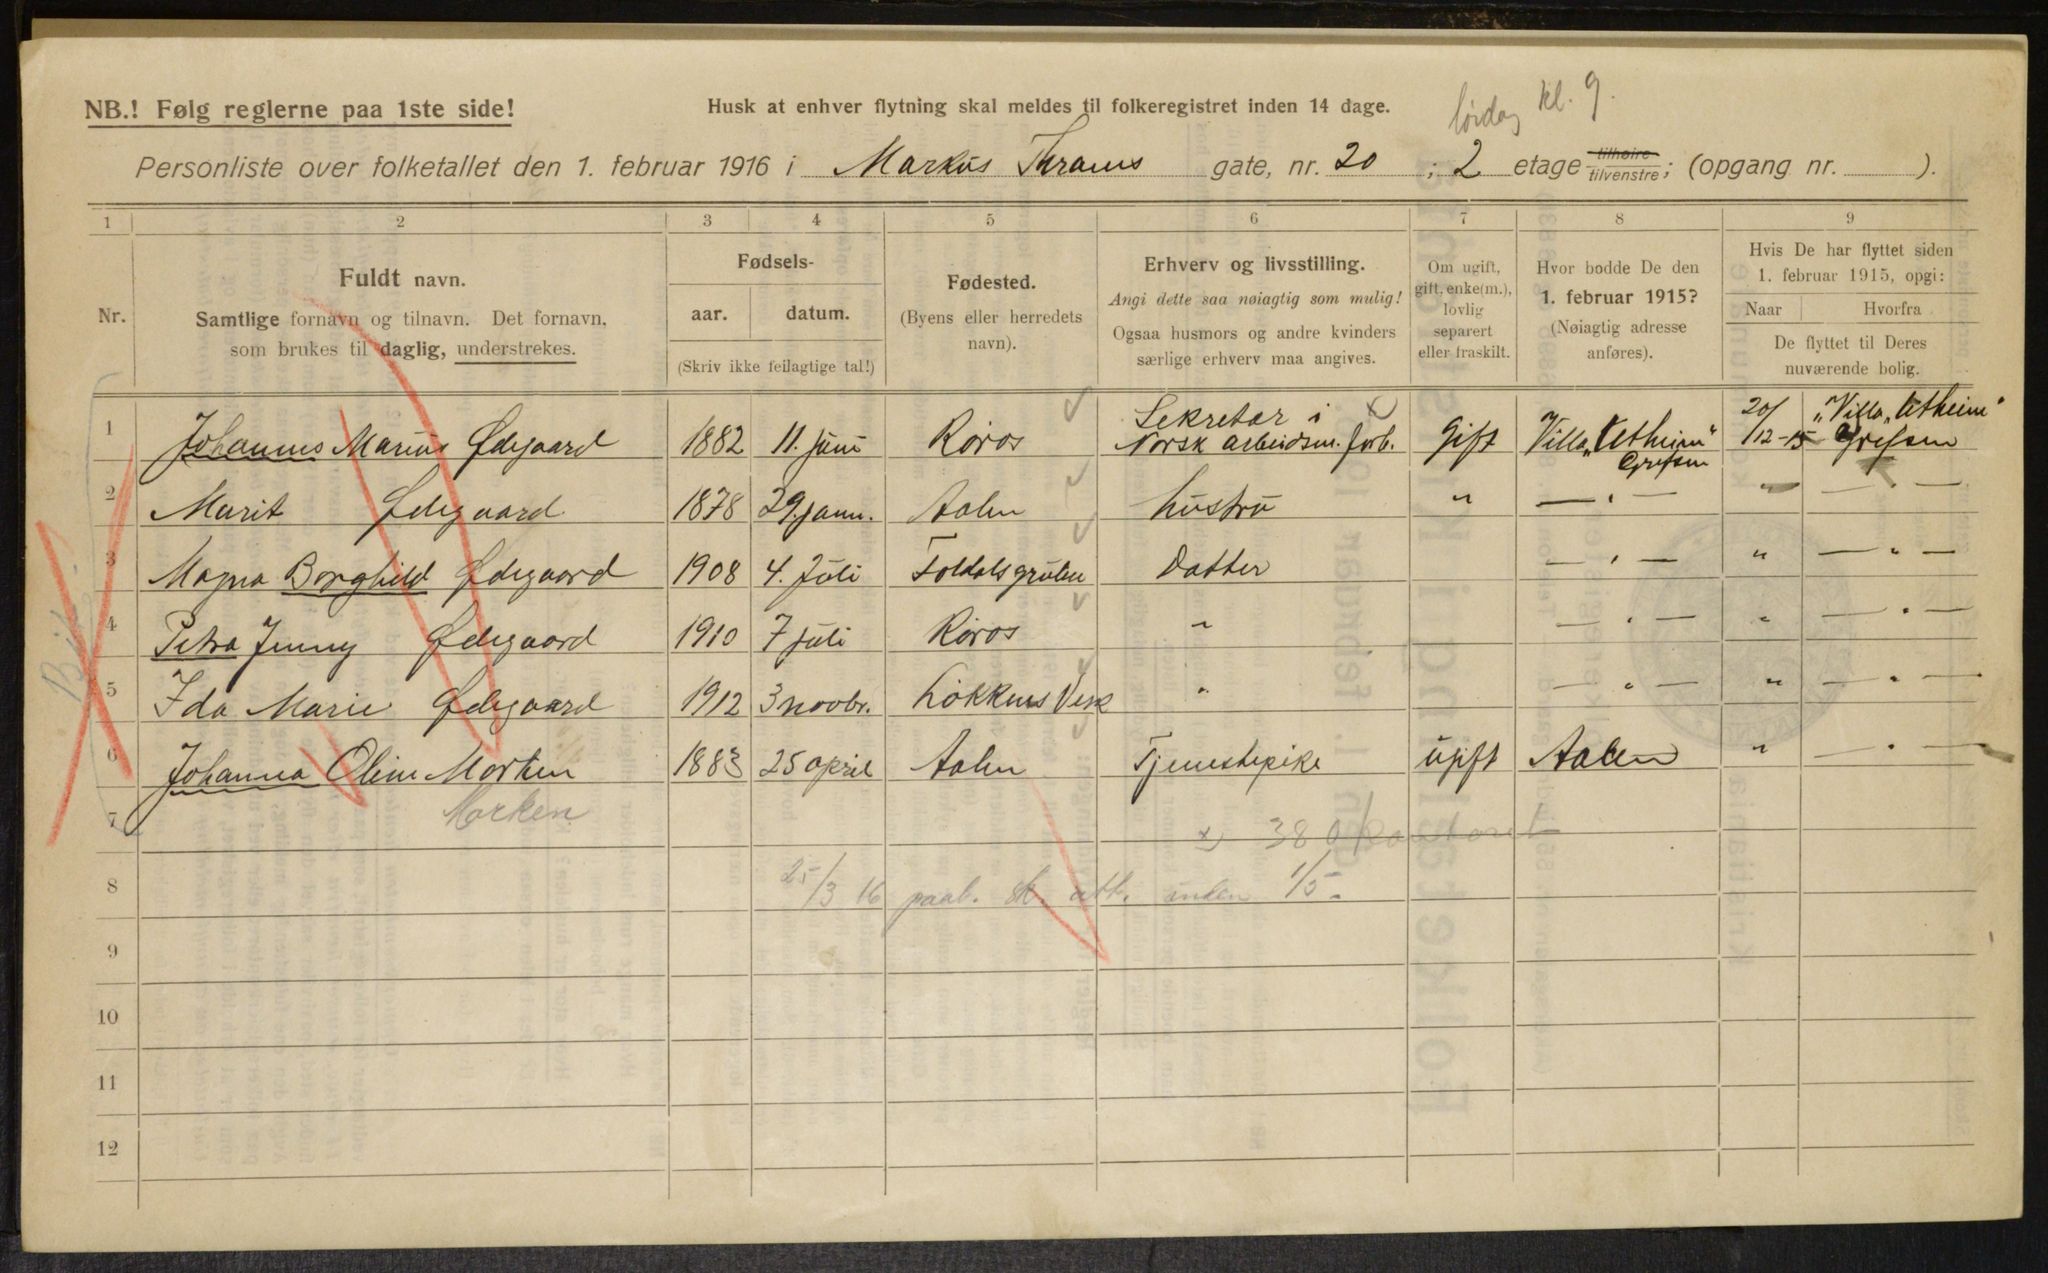 lördag kl. 9.
NB.! Følg reglerne paa 1ste side!
Husk at enhver flytning skal meldes til folkeregistret inden 14 dage.
Personliste over folketallet den 1. februar 1916 i Markus Thranes gate, nr. 20 ; 2 etage tilhøire/tilvenstre; (opgang nr. ).
1 2 3 4 5 6 7 8 9
Nr.
Fuldt navn.
Samtlige fornavn og tilnavn. Det fornavn,
som brukes til daglig, understrekes.
Fødsels-
aar. datum.
(Skriv ikke feilagtige tal!)
Fødested.
(Byens eller herredets
navn).
Erhverv og livsstilling.
Angi dette saa nøiagtig som mulig!
Ogsaa husmors og andre kvinders
særlige erhverv maa angives.
Om ugift,
gift, enke(m.),
lovlig
separert
eller fraskilt.
Hvor bodde De den
1. februar 1915?
(Nøiagtig adresse
anføres).
Hvis De har flyttet siden
1. februar 1915, opgi:
Naar Hvorfra
De flyttet til Deres
nuværende bolig.
1 Johannes Marius Ødegaard 1882 11. juni Röros Sekretær i Norsk arbeidsm. forb. Gift Villa "Utheim" Grefsen 20/12-15 "Villa "Utheim" Grefsen
2 Marit Ødegaard 1878 29. jann. Aalen Hustru " — " — " — " —
3 Magna Borghild Ødegaard 1908 4. Juli Foldalsgruben Datter — " — " — " —
4 Petra Jenny Ødegaard 1910 7 juli Röros " — " — " — " —
5 Ida Marie Ødegaard 1912 3 novbr. Lökkens Verk " — " — " — " —
6 Johanna Oline Morken 1883 25 april Aalen Tjenestepike ugift Aalen " — " —
7 Morken
x) 380/kontoret
8 25/3 16 paab. sk. att. inden 1/5.
9
10
11
12